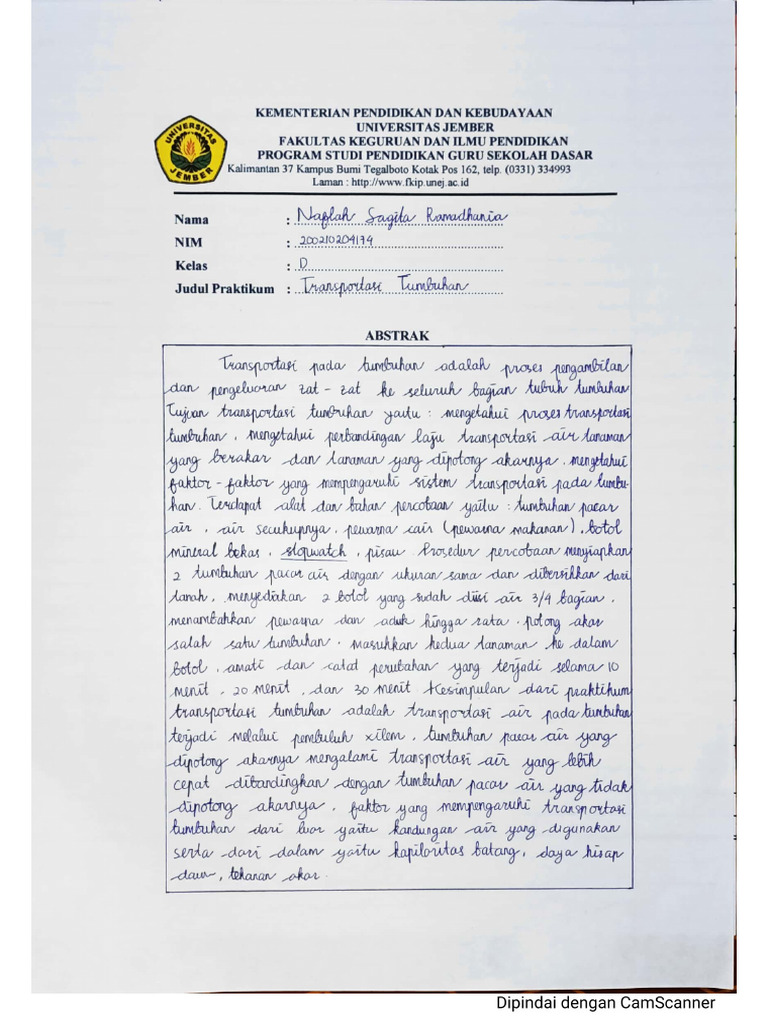 KEMENTERIAN PENDIDIKAN DAN KEBUDAYAAN
UNIVERSITAS JEMBER
FAKULTAS KEGURUAN DAN ILMU PENDIDIKAN
PROGRAM STUDI PENDIDIKAN GURU SEKOLAH DASAR
Kalimantan 37 Kampus Bumi Tegalboto Kotak Pos 162, telp. (0331) 334993
Laman : http://www.fkip.unej.ac.id
UNIVERSITAS
JEMBER
Nama : Naflah Sagita Ramadhania
NIM : 200210204174
Kelas : D
Judul Praktikum : Transportasi Tumbuhan
ABSTRAK
Transportasi pada tumbuhan adalah proses pengambilan
dan pengeluaran zat-zat ke seluruh bagian tubuh tumbuhan
Tujuan transportasi tumbuhan yaitu : mengetahui proses transportasi
tumbuhan, mengetahui perbandingan laju transportasi air tanaman
yang berakar dan tanaman yang dipotong akarnya, mengetahui
faktor-faktor yang mempengaruhi sistem transportasi pada tumbu-
han. Terdapat alat dan bahan percobaan yaitu : tumbuhan pacar
air, air secukupnya, pewarna cair (pewarna makanan), botol
mineral bekas, stopwatch, pisau. Prosedur percobaan menyiapkan
2 tumbuhan pacar air dengan ukuran sama dan dibersihkan dari
tanah, menyediakan 2 botol yang sudah diisi air 3/4 bagian,
menambahkan pewarna dan aduk hingga rata. potong akar
salah satu tumbuhan. masukkan kedua tanaman ke dalam
botol, amati dan catat perubahan yang terjadi selama 10
menit, 20 menit, dan 30 menit. Kesimpulan dari praktikum
transportasi tumbuhan adalah transportasi air pada tumbuhan
terjadi melalui pembuluh xilem, tumbuhan pacar air yang
dipotong akarnya mengalami transportasi air yang lebih
cepat dibandingkan dengan tumbuhan pacar air yang tidak
dipotong akarnya, faktor yang mempengaruhi transportasi
tumbuhan dari luar yaitu kandungan air yang digunakan
serta dari dalam yaitu kapiloritas batang, daya hisap
daun, tekanan akar.
Dipindai dengan CamScanner